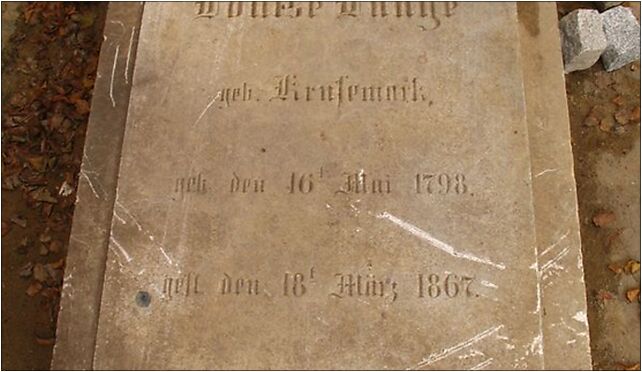 Louise Lange
geb. Krusemark,
geb. den 16t Mai 1798.
gest. den 18t März 1867.